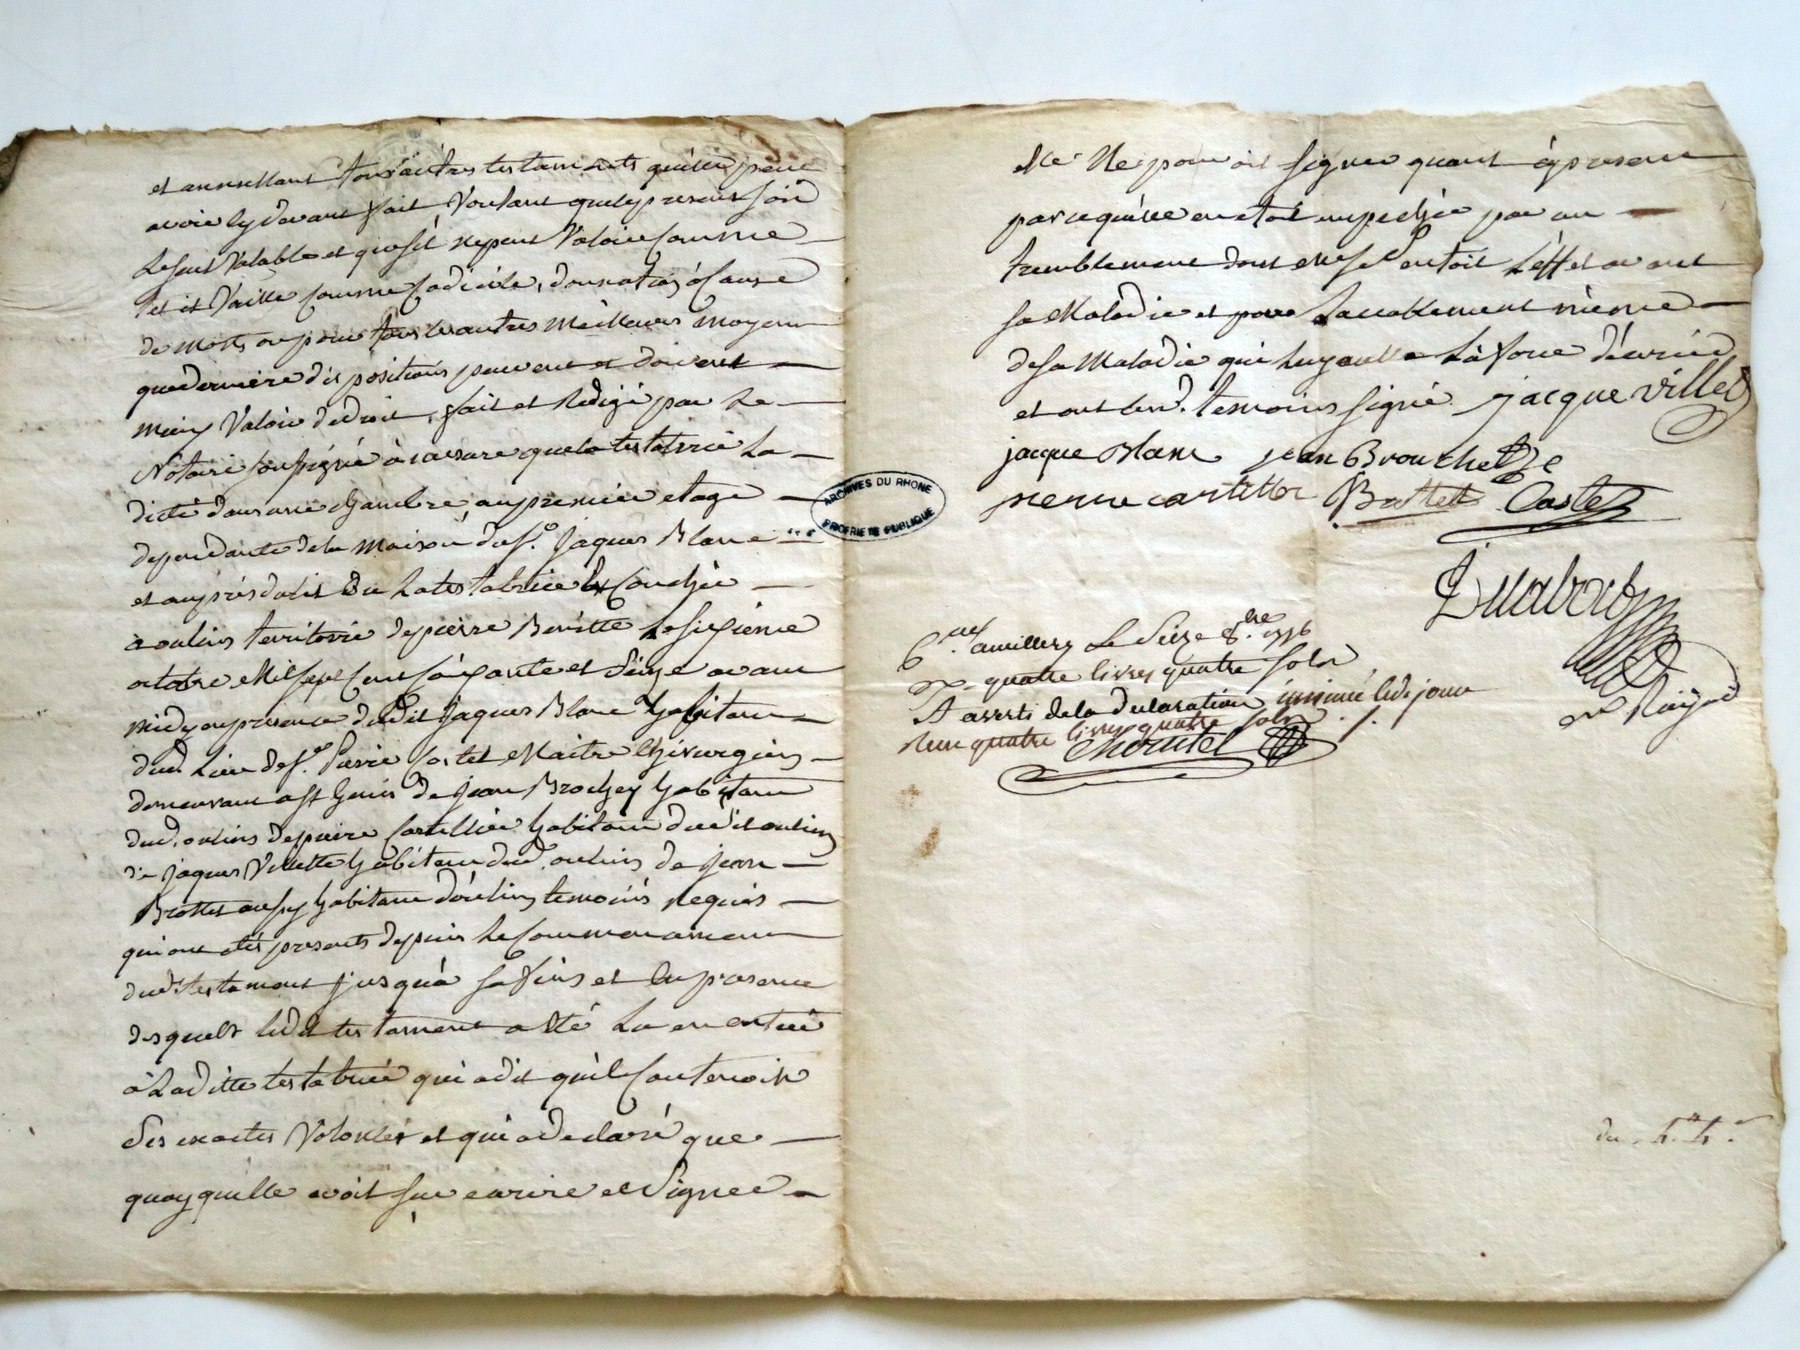 et annullant tous autres testaments qu'elle peut
avoir cy devant fait Voulant que le present soit
le seul Valable et que s'il ne peut Valoir comme
tel il Vaille comme Codicile, donnation à Cause
de mort ou pour tous les autres meilleurs moyens
que derniere dispositions peuvent et doivent
mieux Valoir de droit, fait et Redigé par Le
Notaire soussigné à mesure que la testatrice La
dicté dans une chambre au premier etage
dependante de la maison du sr. Jaques Blanc
et auprès du lit ou La testatrice est Couchée
a oulins territoire de pierre Benitte Le sixieme
octobre Mil sept Cens soixante et Seize avant
midy en presence dudit Jaques Blanc habitant
dud. Lieu de sr. Pierre Costet Maitre Chirurgien
demeurant a st Genis de Jean Brochey habitant
dud. oulins de pierre Cartellier habitant dudit oulins
de Jaques Villette habitant dud. oulins de Jean
Brottet aussy habitant d'oulins temoins requis
qui ont etés presents depuis Le Commencement
dud. testament jusqu'à sa fins et En presence
desquels ledit testament a eté Lu en entier
à Laditte testatrice qui a dit qu'il Contenoit
Ses exactes Volontés et qui a declaré que
quoy qu'elle avoit sçu ecrire et Signer
elle Ne pouvoit signer quant à present
parce qu'elle en etoit empechée par un
tremblement dont elle sentoit L'effet avant
sa Maladie et par Laccablement même
de sa Maladie qui luy ôtte La force d'écrire
et ont les d. temoins signé jacque Villet
jacque Blanc jean Brouchet
pierre cartellier Brottet Costet
Le Seize 8.bre 1776
quatre livres quatre sols
A averti de la declaration
Reçu quatre livres quatre sols
ARCHIVES DU RHONE
PROPRIETE PUBLIQUE